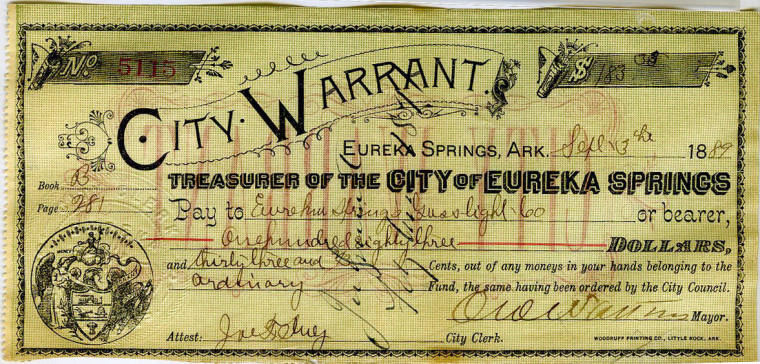 No. 5115
$ 183
CITY WARRANT.
EUREKA SPRINGS, ARK. Sept 13th 1889
Book B
TREASURER OF THE CITY OF EUREKA SPRINGS
Page 281
Pay to Eureka Springs Gas light Co or bearer,
One hundred eighty three DOLLARS,
and thirty three and Cents, out of any moneys in your hands belonging to the
ordinary Fund, the same having been ordered by the City Council.
Mayor.
Attest: City Clerk.
WOODRUFF PRINTING CO., LITTLE ROCK, ARK.